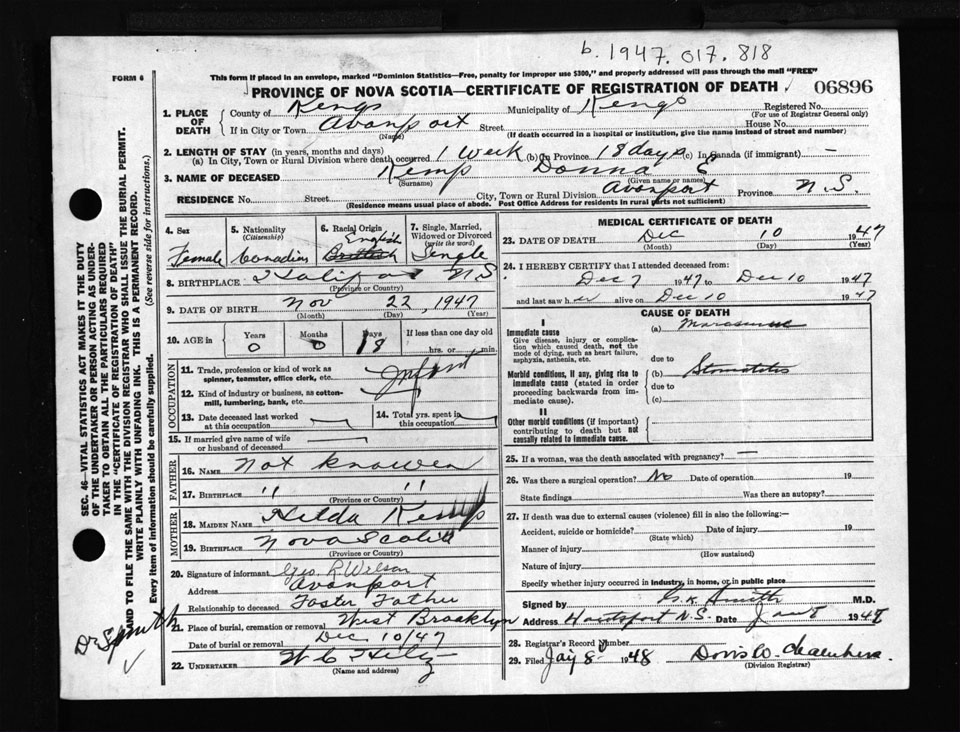 b. 1947. 017. 818
FORM 6
This form if placed in an envelope, marked "Dominion Statistics—Free, penalty for improper use $300," and properly addressed will pass through the mail "FREE"
PROVINCE OF NOVA SCOTIA—CERTIFICATE OF REGISTRATION OF DEATH 06896
1. PLACE OF DEATH County of Kings Municipality of Kings Registered No.
(For use of Registrar General only)
If in City or Town Avonport Street House No.
(Name) (If death occurred in a hospital or institution, give the name instead of street and number)
2. LENGTH OF STAY (in years, months and days)
(a) In City, Town or Rural Division where death occurred 1 Week (b) In Province 18 days (c) In Canada (if immigrant) —
3. NAME OF DECEASED Kemp Donna E
(Surname) (Given name or names)
RESIDENCE No. Street City, Town or Rural Division Avonport Province N.S.
(Residence means usual place of abode. Post Office Address for residents in rural parts not sufficient)
4. Sex Female
5. Nationality (Citizenship) Canadian
6. Racial Origin English British
7. Single, Married, Widowed or Divorced (write the word) Single
8. BIRTHPLACE Halifax N S
(Province or Country)
9. DATE OF BIRTH Nov 22, 1947
(Month) (Day) (Year)
10. AGE in Years 0 Months 0 Days 18 If less than one day old hrs. or min.
OCCUPATION
11. Trade, profession or kind of work as spinner, teamster, office clerk, etc. Infant
12. Kind of industry or business, as cotton-mill, lumbering, bank, etc.
13. Date deceased last worked at this occupation
14. Total yrs. spent in this occupation
15. If married give name of wife or husband of deceased
FATHER
16. NAME Not knowen
17. BIRTHPLACE " "
(Province or Country)
MOTHER
18. MAIDEN NAME Hilda Kemp
19. BIRTHPLACE Nova Scotia
(Province or Country)
20. Signature of informant Geo. R Wilson
Address Avonport
Relationship to deceased Foster Father
21. Place of burial, cremation or removal West Brooklyn
Date of burial or removal Dec 10/47
22. UNDERTAKER W C Hiltz
(Name and address)
MEDICAL CERTIFICATE OF DEATH
23. DATE OF DEATH Dec 10 1947
(Month) (Day) (Year)
24. I HEREBY CERTIFY that I attended deceased from:
Dec 7 1947 to Dec 10 1947
and last saw her alive on Dec 10 1947
CAUSE OF DEATH
I
Immediate cause (a) Marasmus
Give disease, injury or complication which caused death, not the mode of dying, such as heart failure, asphyxia, asthenia, etc.
due to
Morbid conditions, if any, giving rise to immediate cause (stated in order proceeding backwards from immediate cause). (b) Stomatitis
due to
(c)
II
Other morbid conditions (if important) contributing to death but not causally related to immediate cause.
25. If a woman, was the death associated with pregnancy? —
26. Was there a surgical operation? No Date of operation 19
State findings Was there an autopsy?
27. If death was due to external causes (violence) fill in also the following:—
Accident, suicide or homicide? Date of injury 19
(State which)
Manner of injury
(How sustained)
Nature of injury
Specify whether injury occurred in industry, in home, or in public place
Signed by G.K. Smith M.D.
Address Hantsport N.S. Date Jan 8 1948
28. Registrar's Record Number
29. Filed Jany 8 1948 Doris W. Chambers
(Division Registrar)
SEC. 46—VITAL STATISTICS ACT MAKES IT THE DUTY
OF THE UNDERTAKER OR PERSON ACTING AS UNDERTAKER TO OBTAIN ALL THE PARTICULARS REQUIRED
IN THE "CERTIFICATE OF REGISTRATION OF DEATH"
AND TO FILE THE SAME WITH THE DIVISION REGISTRAR WHO SHALL ISSUE THE BURIAL PERMIT.
WRITE PLAINLY WITH UNFADING INK. THIS IS A PERMANENT RECORD.
Every item of information should be carefully supplied. (See reverse side for instructions.)
Dr Smith